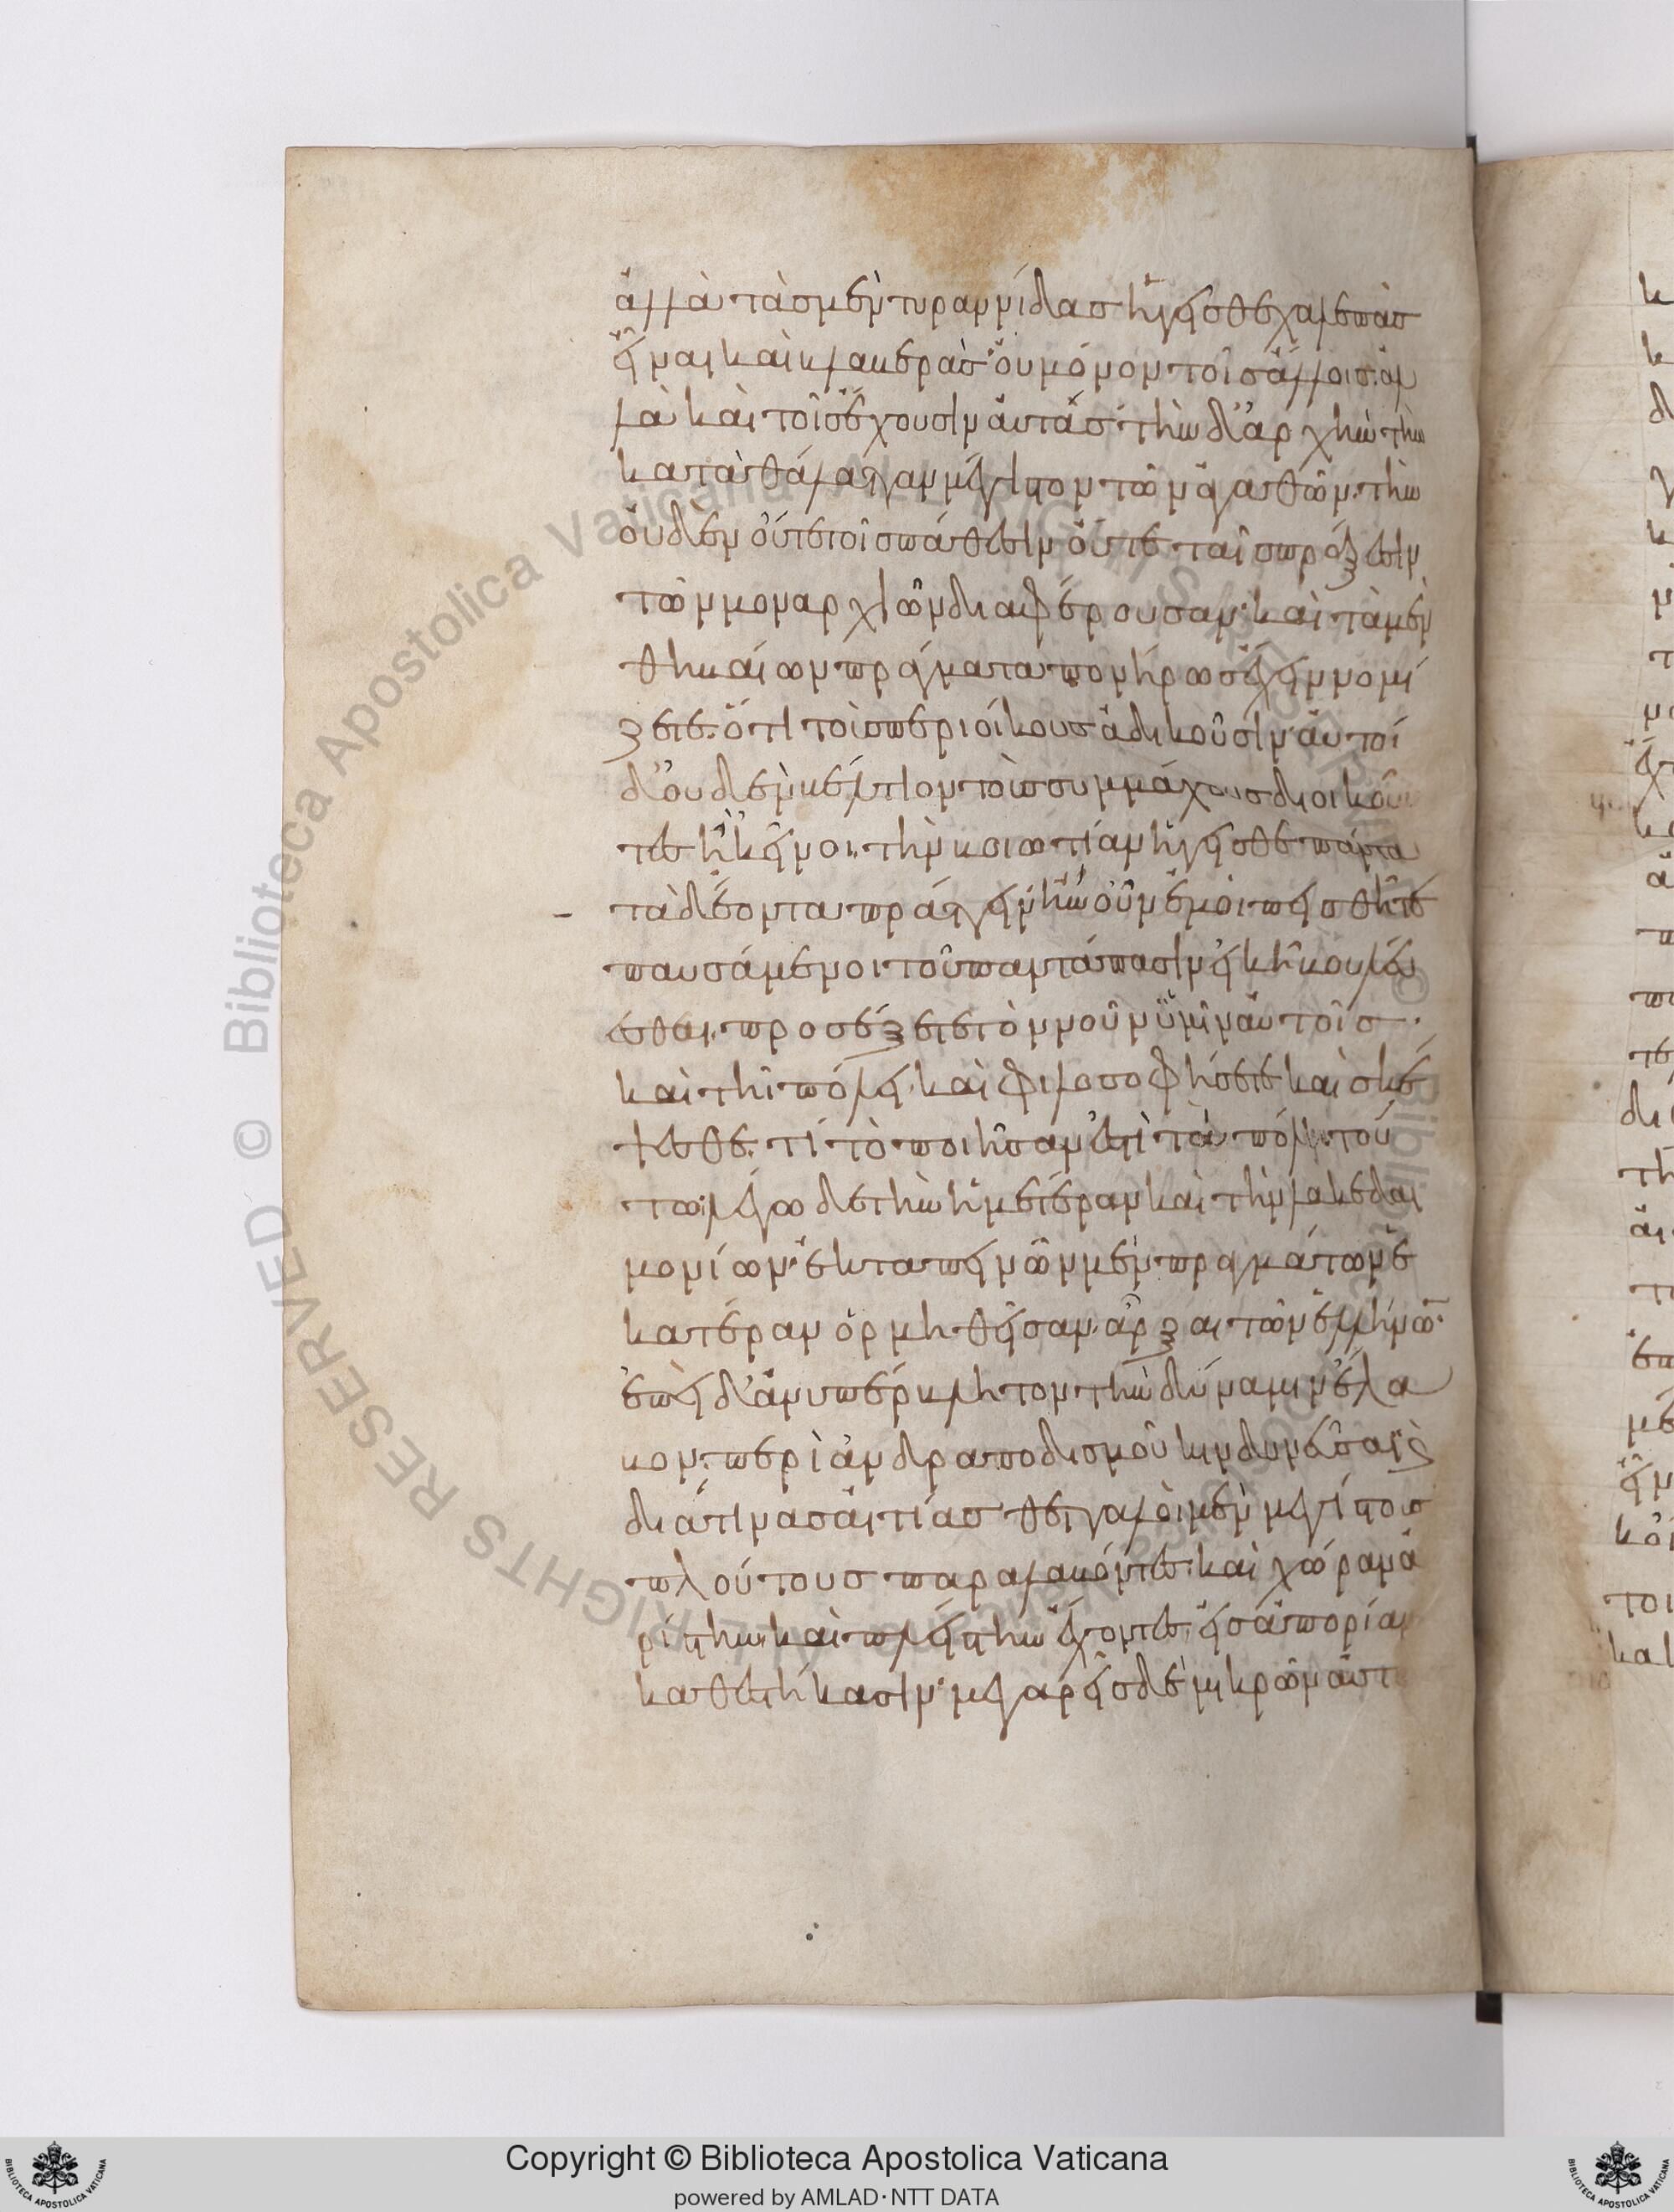 ἀλλὰ τὰσ μὲν τυραννίδασ ἡγεῖσθε χαλεπὰσ
εἶναι καὶ βλαβερὰσ· οὐ μόνον τοῖσ ἄλλοισ· ἀλ
λὰ καὶ τοῖσ ἔχουσιν αὐτάσ· τὴν δ' ἀρχὴν τὴν
κατὰ θάλατταν μέγιστον τῶν ἀγαθῶν· τὴν
οὐδὲν οὔτε τοῖσ πάθεσιν οὔτε ταῖσ πράξεσιν
τῶν μοναρχιῶν διαφέρουσαν· καὶ τὰ μὲν
θηβαίων πράγματα πονήρωσ ἔχειν νομί
ζετε· ὅτι τοὺσ περιοίκουσ ἀδικοῦσιν· αὐτοὶ
δ' οὐδὲν βέλτιον τοὺσ συμμάχουσ διοικοῦν
τεσ ἢ 'κεῖνοι· τὴν βοιωτίαν ἡγεῖσθε πάντα
τὰ δέοντα πράττειν· ἢν οὖν ἐμοὶ πεισθῆτε
παυσάμενοι τοῦ παντάπασιν εἰκῆ βουλεύ
εσθαι· προσέξετε τὸν νοῦν ὑμῖν αὐτοῖσ·
καὶ τῆ πόλει· καὶ φιλοσοφήσετε καὶ σκέ
ψεσθε· τί τὸ ποιῆσάν ἐστι τὼ πόλη τού
τω· λέγω δὲ τὴν ἡμετέραν καὶ τὴν λακεδαι
μονίων· ἐκ ταπεινῶν μὲν πραγμάτων ἑ
κατέραν ὁρμηθεῖσαν· ἄρξαι τῶν ἑλλήνων·
ἐπεὶ δ' ἀνυπέρβλητον τὴν δύναμιν ἔλα
βον· περὶ ἀνδραποδισμοῦ κινδυνεῦσαι· καὶ
διὰ τίνασ αἰτίασ θετταλοὶ μὲν μεγίστουσ
πλούτουσ παραλαβόντεσ· καὶ χώραν ἀ
ρίστην καὶ πλείστην ἔχοντεσ· εἰσ ἀπορίαν
καθεστήκασιν· μεγαρεῖσ δὲ μικρῶν αὐτ